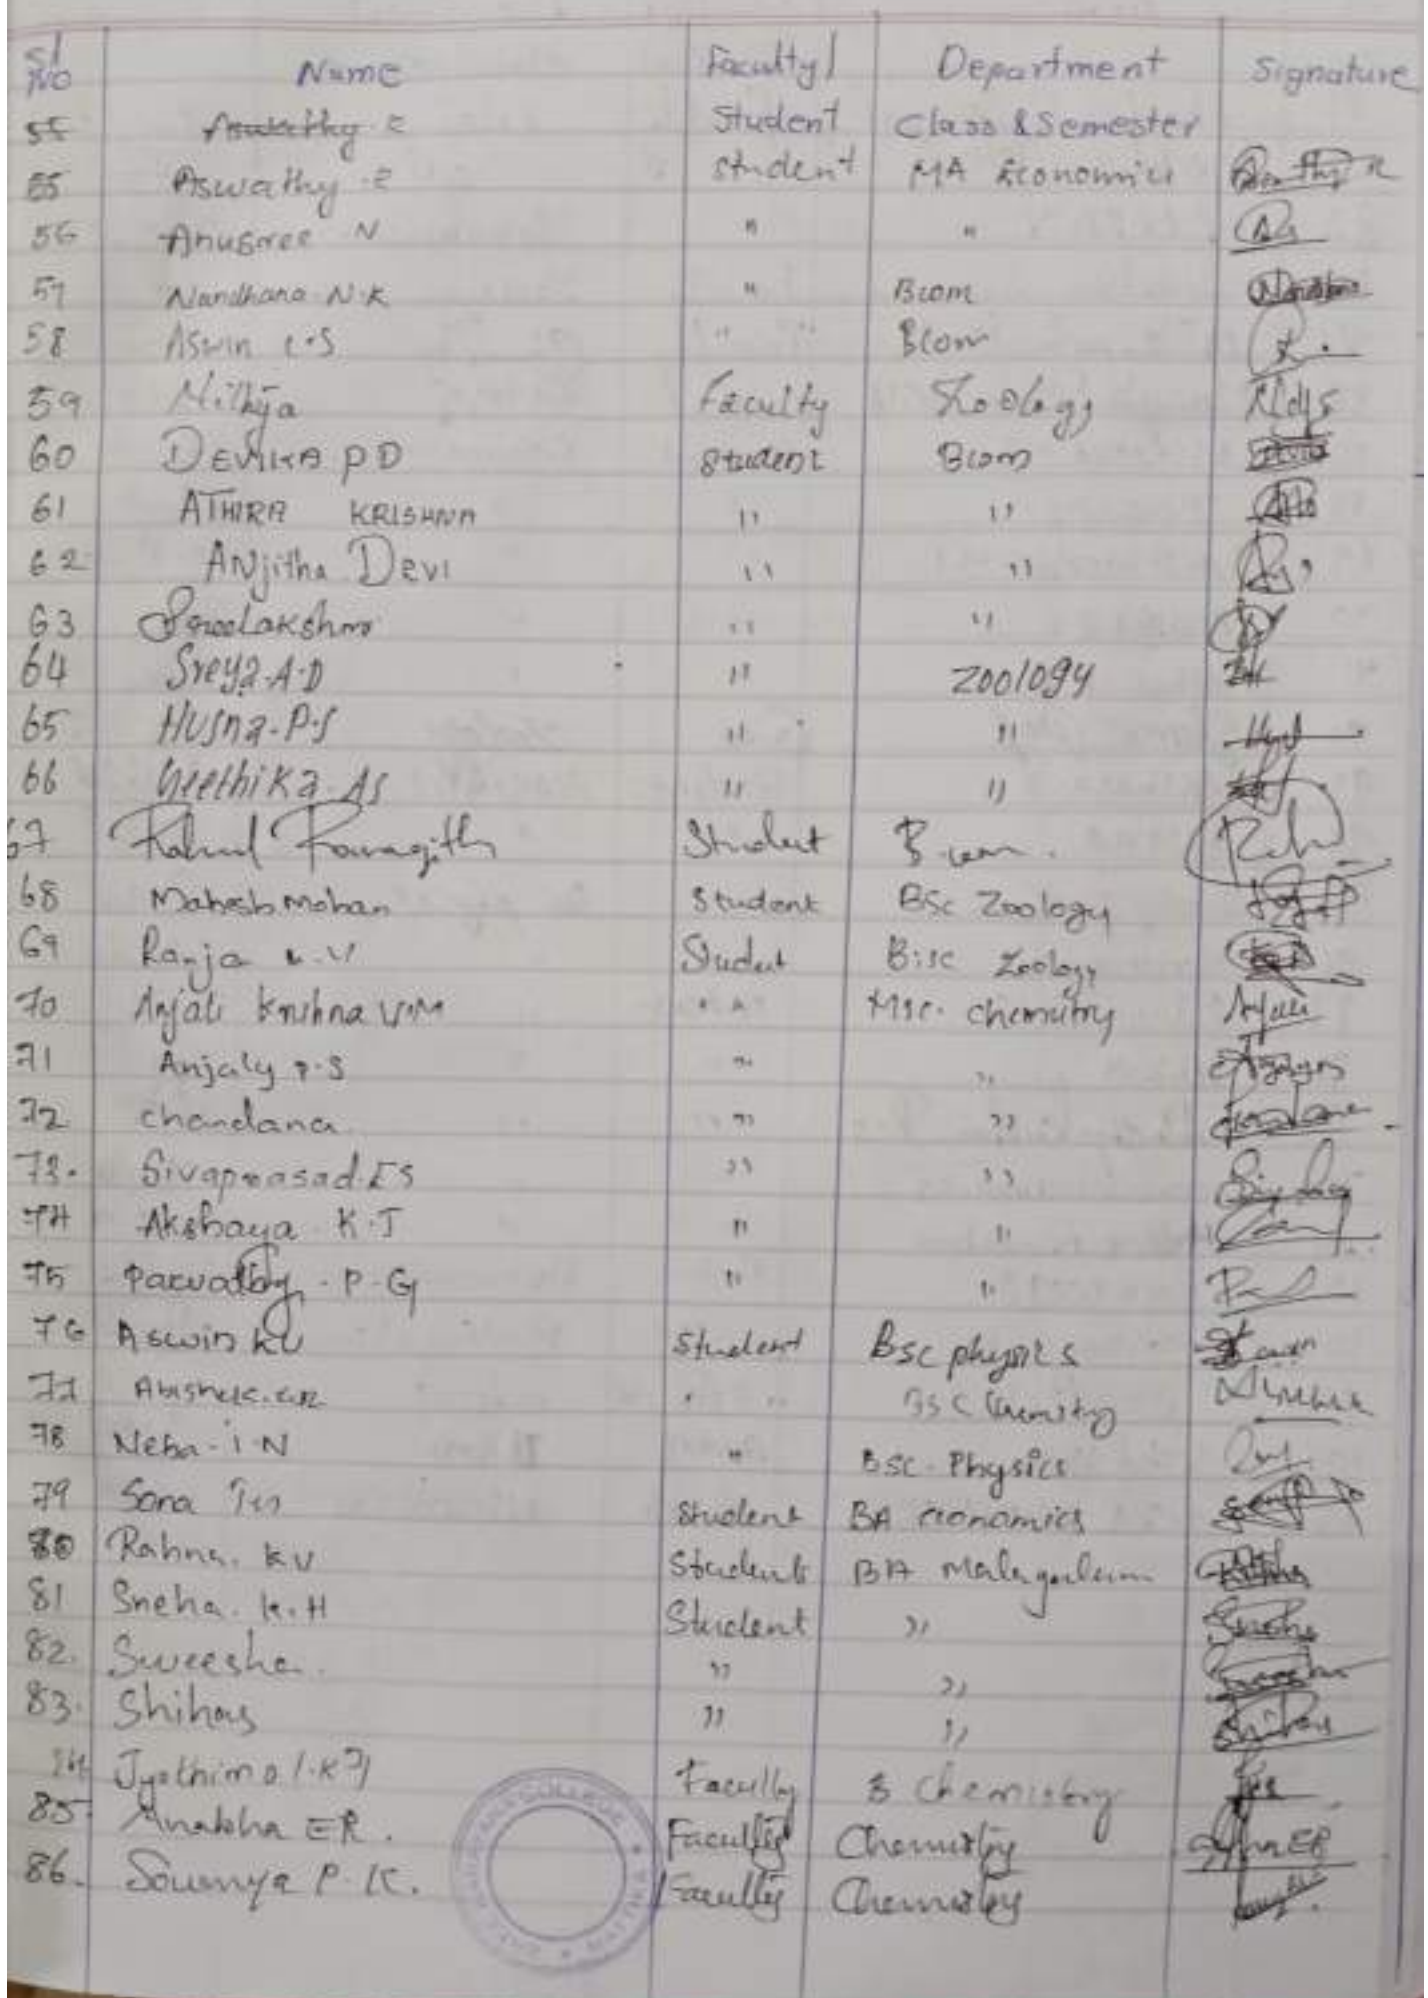 Sl No Name Faculty/ Student Department Class & Semester Signature
55 Aswathy E
55 Aswathy E Student MA Economics
56 Anusree N " "
57 Nandhana N.K " Bcom
58 Aswin C.S " " Bcom
59 Nithya Faculty Zoology
60 DEVIKA P D Student Bcom
61 ATHIRA KRISHNA " "
62 ANjitha Devi " "
63 SreeLakshmi " "
64 Sreya.A.D " Zoology
65 Husna.P.S " "
66 Geethika.AS " "
67 Rahul Student B.com.
68 Mahesh Mohan Student BSc Zoology
69 Ranja K.V Student B.sc Zoology
70 Anjali Krishna V.M " " Msc. chemistry Anjali
71 Anjaly P.S " "
72 chandana " "
73. Sivaprasad.ES " "
74 Akshaya K.J " "
75 Parvathy - P - G " "
76 Aswin KV Student Bsc physics
77 Abishek. " BSC Chemistry
78 Neha - i - N " BSC - Physics
79 Sona Student BA economics
80 Rahna. KV Student BA Malayalam
81 Sneha. K.H Student " Sneha
82. Sweesha. " "
83. Shihas " " Shihas
84 Jyothimol.K Faculty Chemistry
85. Anabha ER. Faculty Chemistry
86. Soumya P. K. Faculty Chemistry